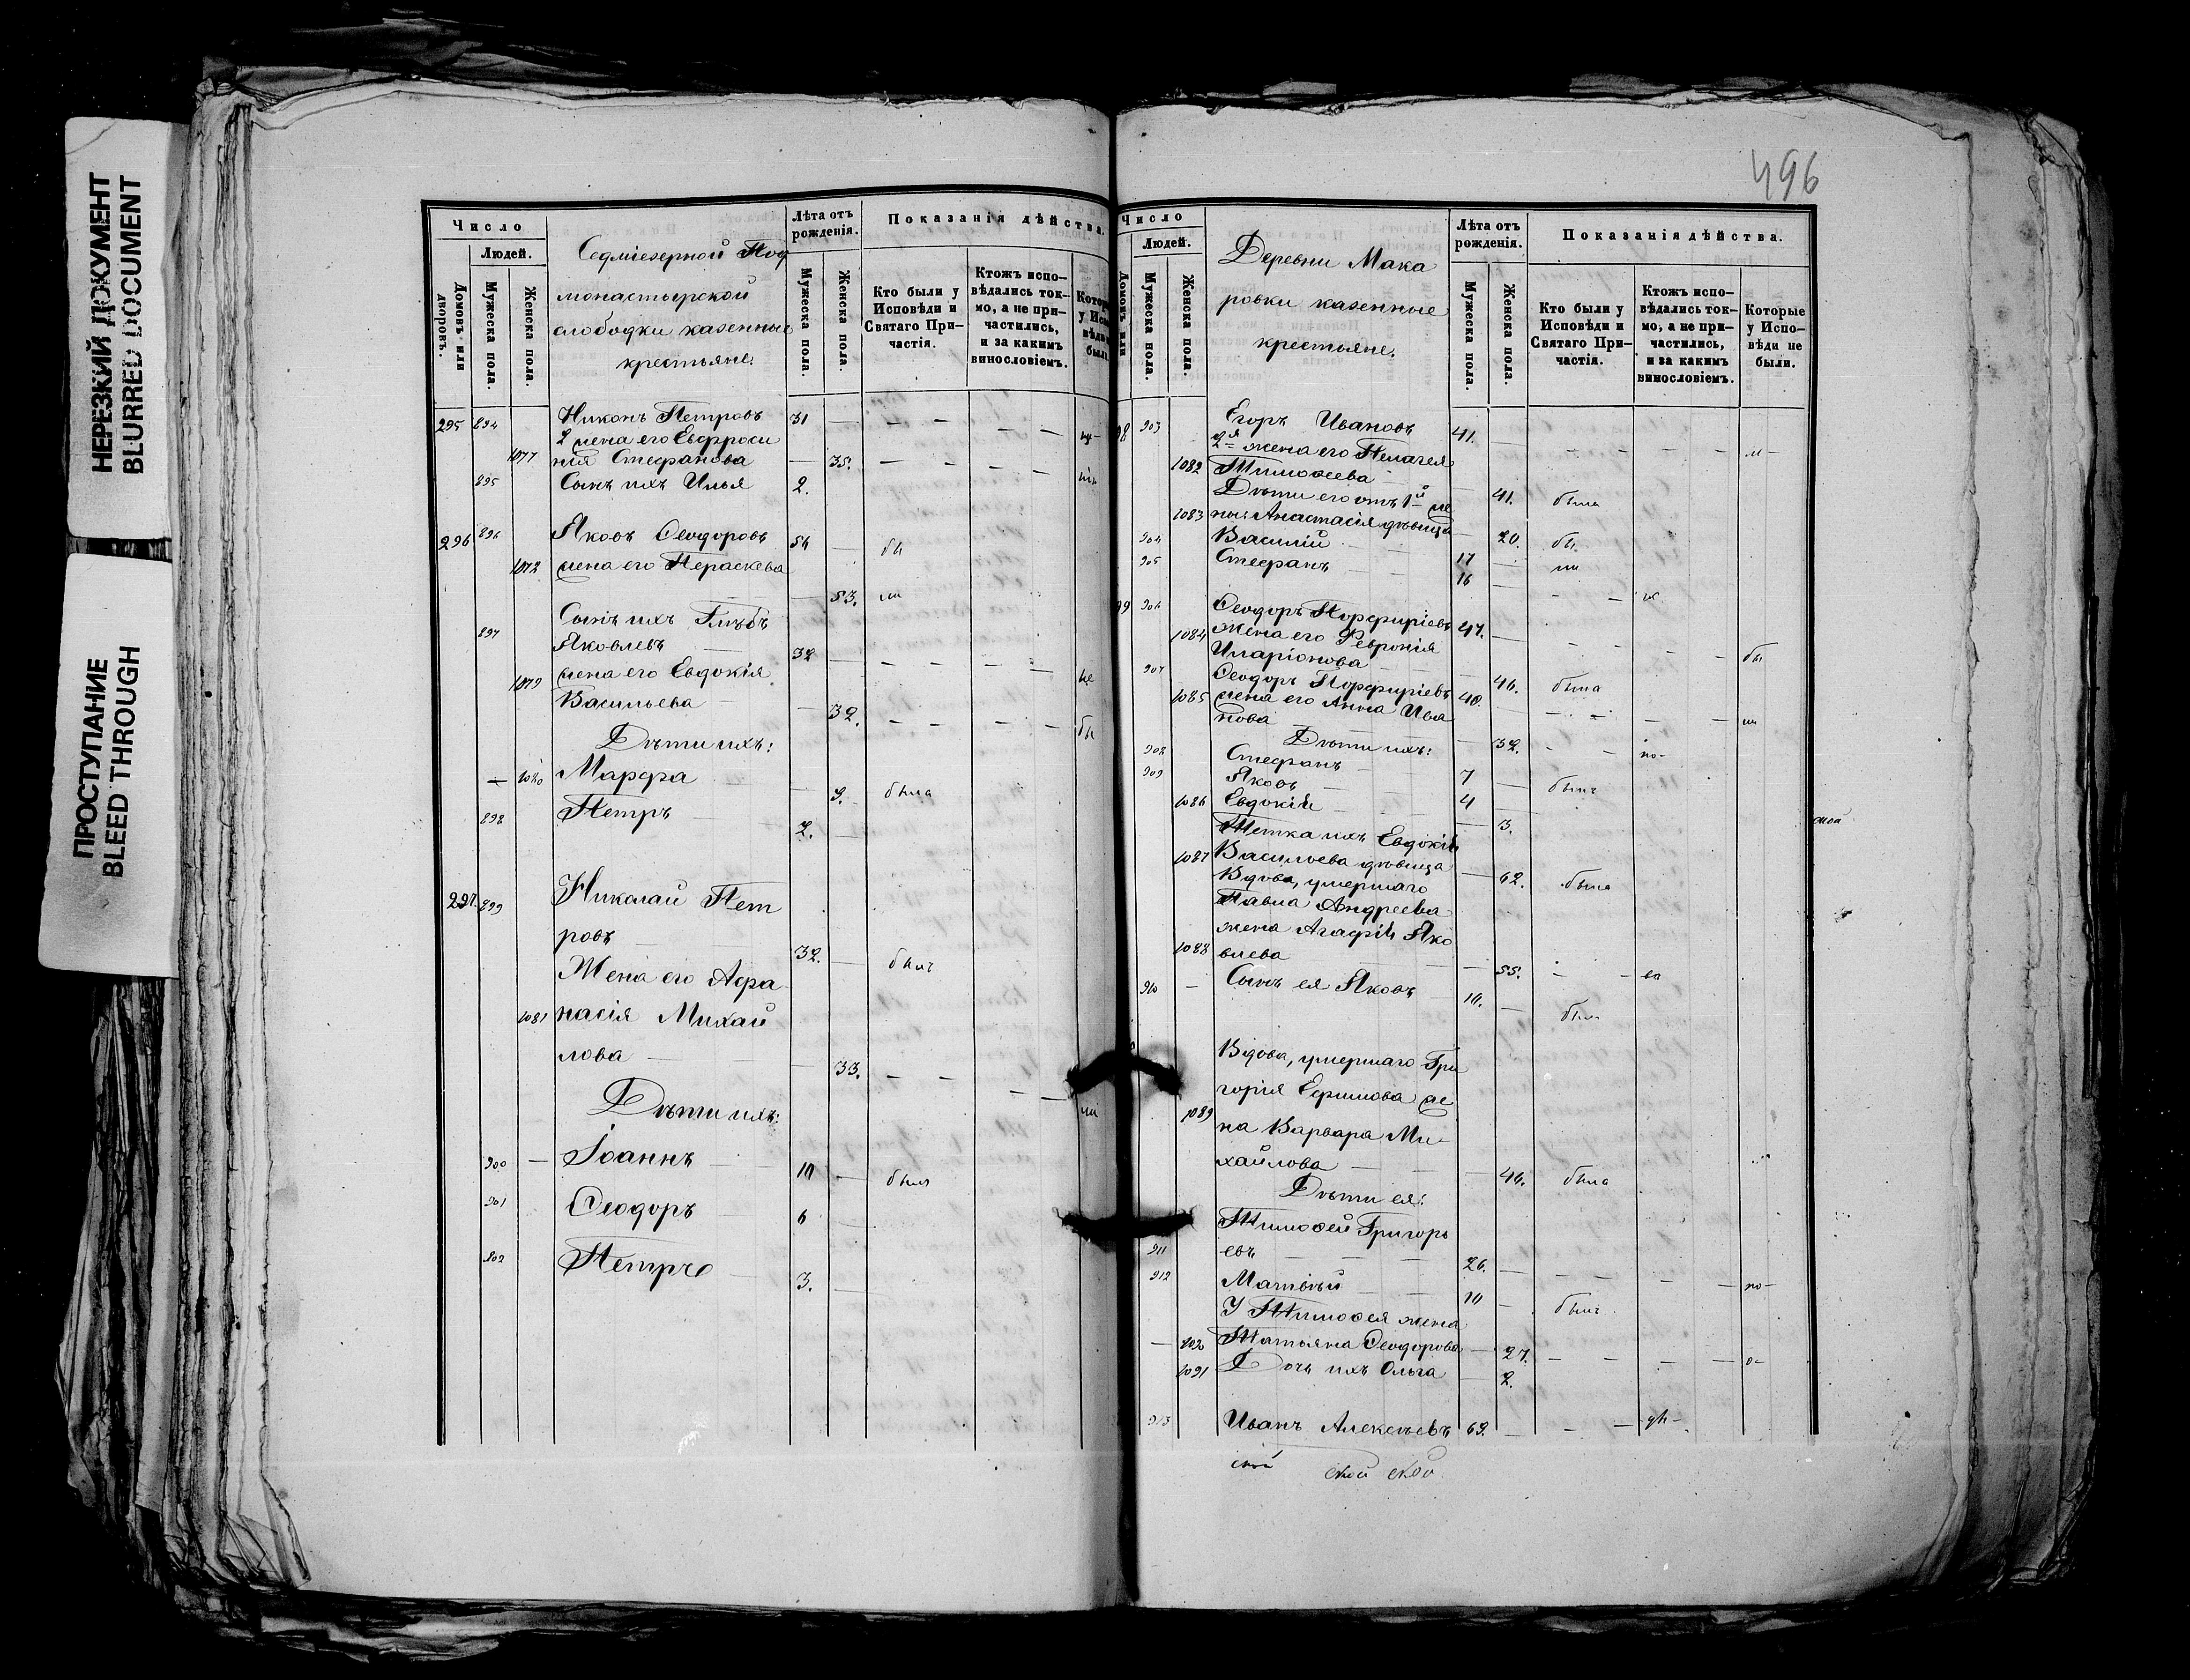 НЕРЕЗКИЙ ДОКУМЕНТ
BLURRED DOCUMENT
ПРОСТУПАНИЕ
BLEED THROUGH
Число
Людей.
Домовъ или дворовъ.
Мужеска пола.
Женска пола.
Седміезерной Под
монастырской
слободки казенные
крестьяне.
Лѣта отъ рожденія.
Мужеска пола.
Женска пола.
Показанія дѣйства.
Кто были у Исповѣди и Святаго При-частія.
Ктожъ испо-вѣдались ток-мо, а не при-частились, и за какимъ винословіемъ.
295 894 Никонъ Петровъ 31
2 жена его Евфроси
1077 нія Стефанова 35.
895 Сынъ ихъ Илья 2.
296 896 Яковъ Ѳеодоровъ 54 бы
жена его Параскева
53.
Сынъ ихъ Глѣбъ
897 Яковлевъ 32
1079 жена его Евдокія не
Васильева 32. бы
Дѣти ихъ:
1080 Марѳа 9. была
898 Петръ 7.
297. 899 Николай Пет
ровъ 32. былъ
Жена его Аѳа
1081 насія Михай
лова 33.
Дѣти ихъ:
900 Іоаннъ 10 были
901 Ѳеодоръ 6
902 Петръ 3.
496
Число
Людей.
Домовъ или
Мужеска пола.
Женска пола.
Деревни Мака
ровки казенные
крестьяне.
Лѣта отъ рожденія.
Мужеска пола.
Женска пола.
Показанія дѣйства.
Кто были у Исповѣди и Святаго При-частія.
Ктожъ испо-вѣдались ток-мо, а не при-частились, и за какимъ винословіемъ.
Которые у Испо-вѣди не были.
98 903 Егоръ Ивановъ 41.
2я жена его Пелагея
1082 Тимоѳеева 41. была
Дѣти его отъ 1й же
1083 ны: Анастасія дѣвица 20. бы
904 Василій 17 ли
905 Стефанъ 16
99 906 Ѳеодоръ Порфиріевъ 47.
1084 жена его Ѳевронія бы
Иларіонова 46. была
907 Ѳеодоръ Порфиріевъ 40.
1085 жена его Анна Ива ли
нова 32. но
Дѣти ихъ:
908 Стефанъ 7 былъ
909 Яковъ 4
1086 Евдокія 3.
Тетка ихъ Евдокія
1087 Васильева дѣвица 62. была
Вдова, умершаго
Павла Андреева
жена Агафія Яко
1088 влева 55. ва
910 Сынъ ея Яковъ 10. былъ
Вдова, умершаго Гри
горія Ефимова же
1089 на Варвара Ми-
хайлова 46. была
Дѣти ея:
Тимоѳей Григорь
911 евъ 26. но
912 Матвѣй 10 былъ
У Тимоѳея жена
Татьяна Ѳеодорова 27.
1091 Дочь ихъ Ольга 2.
913 Иванъ Алексѣевъ 69.
ской ской